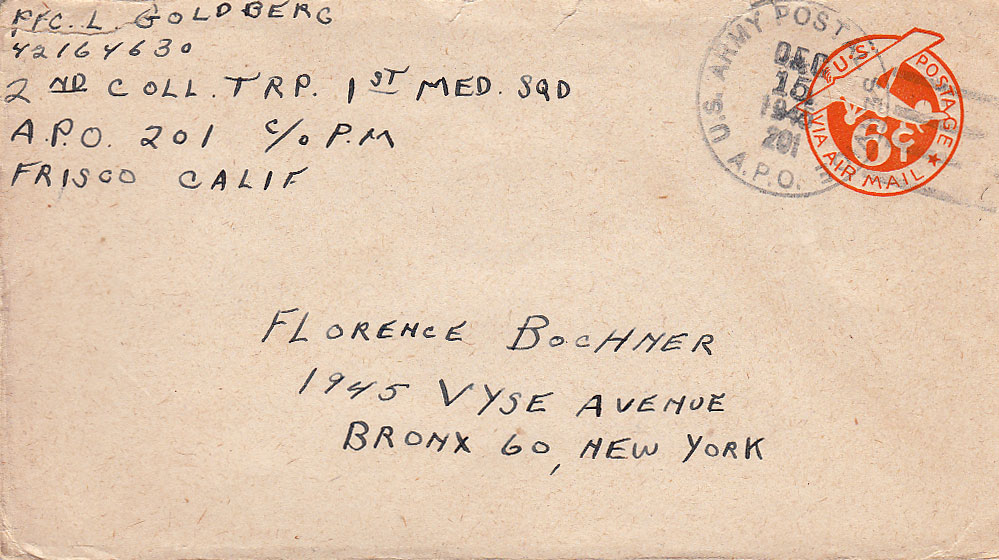 PFC. L. GOLDBERG
42164630
2ND COLL. TRP. 1ST MED. SQD
A.P.O. 201 C/O P.M
FRISCO CALIF
U.S. ARMY POSTAL
DEC
15
1945
201
A.P.O.
U.S. POSTAGE
6¢
VIA AIR MAIL
FLORENCE BOCHNER
1945 VYSE AVENUE
BRONX 60, NEW YORK